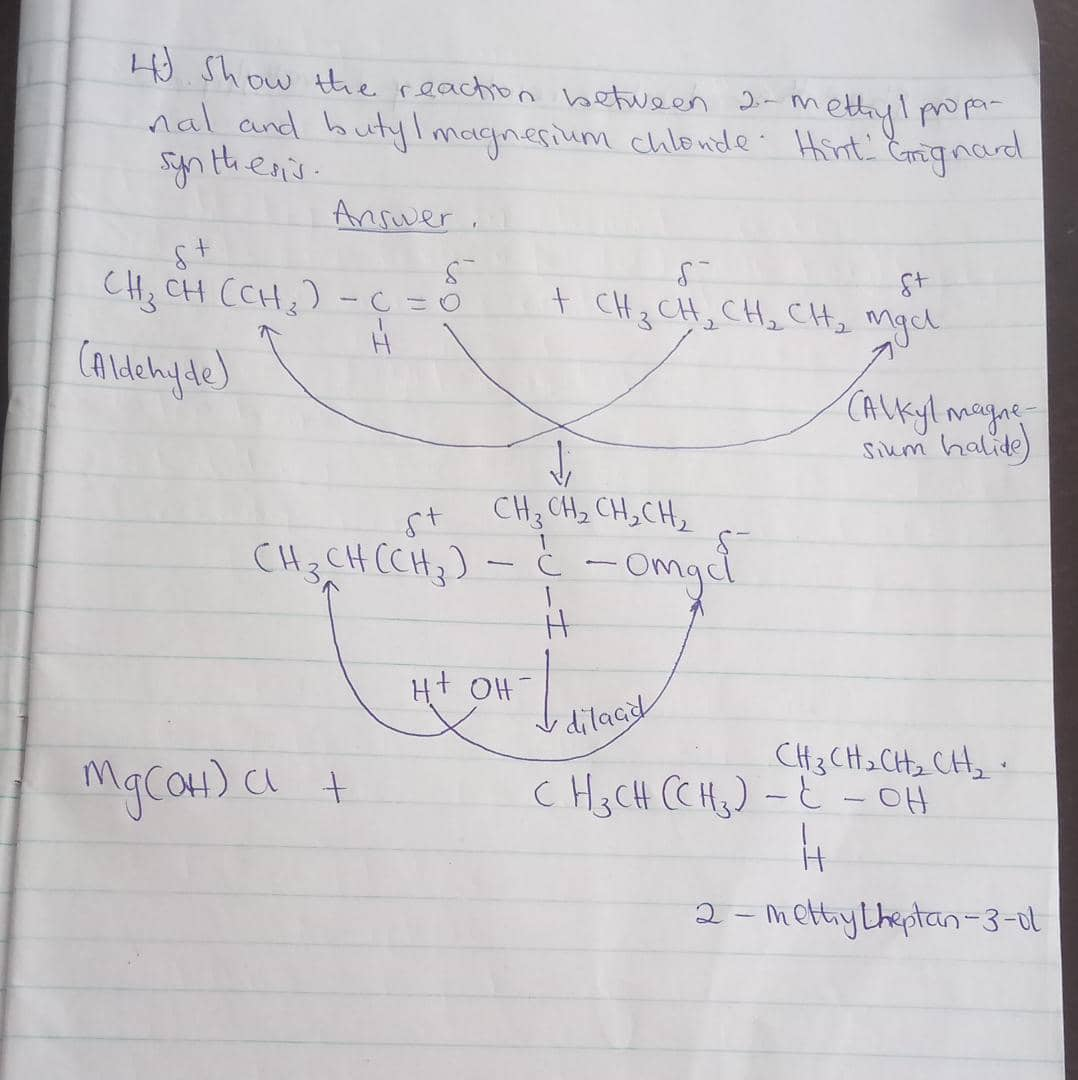 4) Show the reaction between 2-methyl propa-
nal and butyl magnesium chloride. Hint: Grignard
synthesis.
Answer.
δ+ δ- δ- δ+
CH₃ CH (CH₃) - C = O + CH₃ CH₂ CH₂ CH₂ Mgcl
H
(Aldehyde)
(Alkyl magne-
sium halide)
CH₃ CH₂ CH₂ CH₂
δ+ δ-
CH₃ CH (CH₃) - C - Omgcl
H
H+ OH-
dil acid
CH₃ CH₂ CH₂ CH₂.
Mg(OH) Cl + CH₃CH (CH₃) - C - OH
H
2 - methylheptan-3-ol